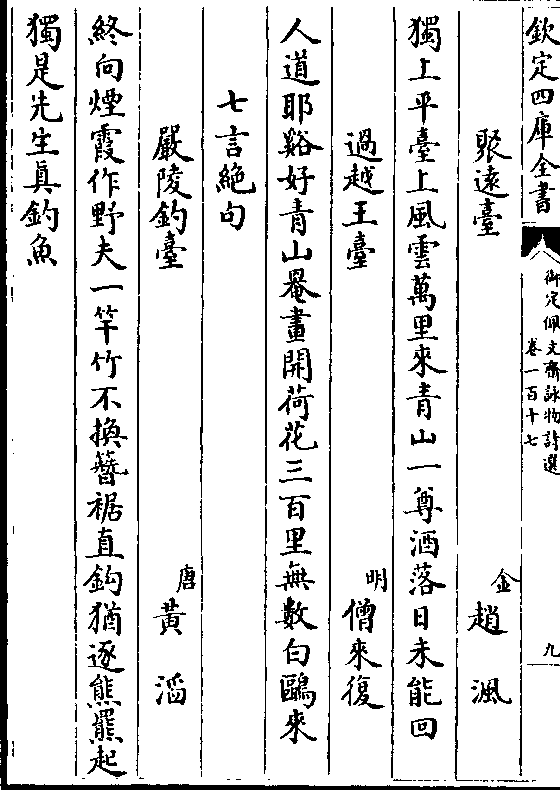 欽定四庫全書
御定佩文齋詠物詩選
卷一百十七
九
聚遠臺
金 趙渢
獨上平臺上風雲萬里來青山一尊酒落日未能回
過越王臺
明 僧來復
人道耶谿好青山罨畫開荷花三百里無數白鷗來
七言絶句
嚴陵釣臺
唐 黃滔
終向煙霞作野夫一竿竹不換簪裾直鈎猶逐熊羆起
獨是先生眞釣魚